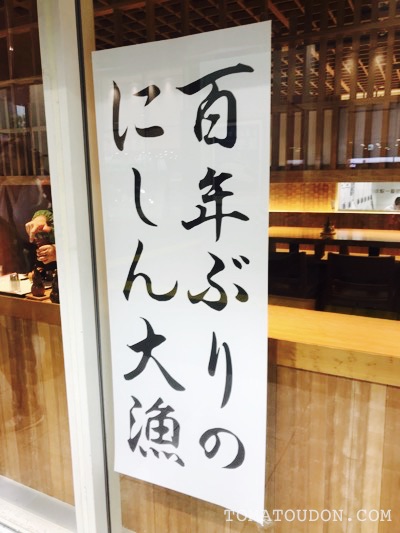 百年ぶりの
にしん大漁
TOKATOUDON.COM